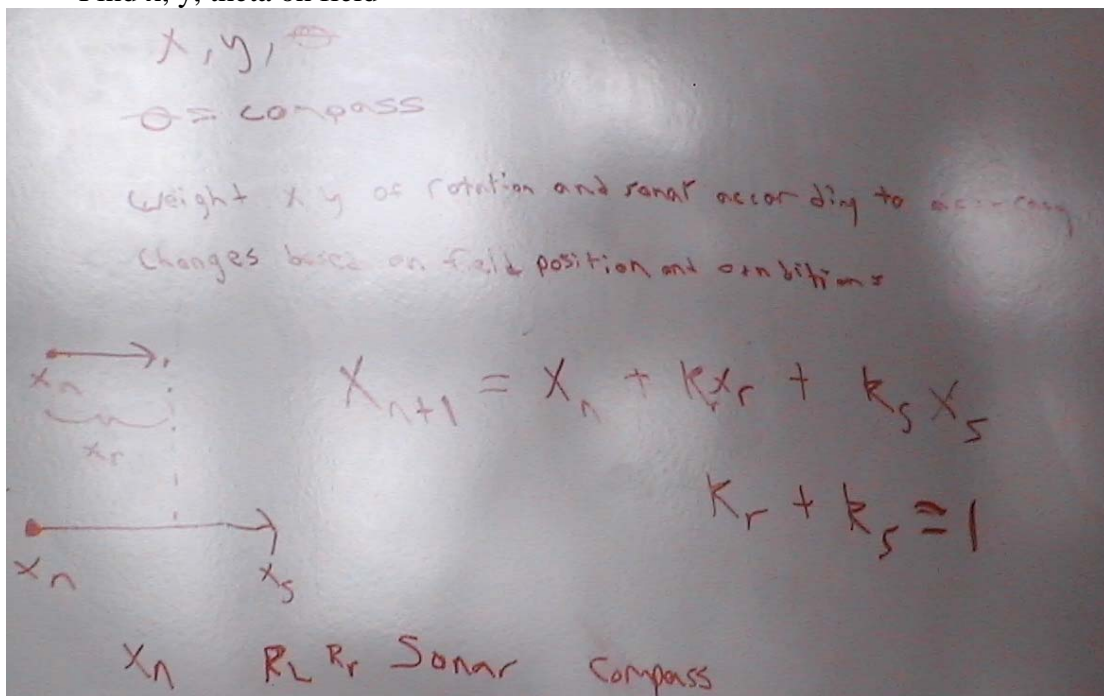 Find x, y, theta on field
x, y, θ
θ = compass
Weight x y of rotation and sonar according to accuracy
Changes based on field position and conditions
x_n
x_r
X_{n+1} = X_n + k_r x_r + k_s x_s
K_r + k_s ≅ 1
x_n
x_s
x_n R_L R_r Sonar Compass